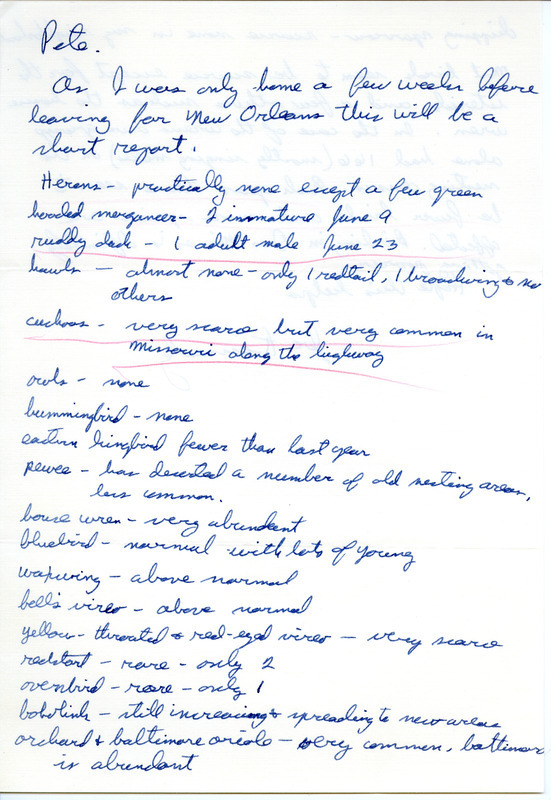 Pete.
As I was only home a few weeks before
leaving for New Orleans this will be a
short report.
Herons - practically none except a few green
hooded merganser - 2 immature June 9
ruddy duck - 1 adult male June 23
hawks - almost none - only 1 redtail, 1 broadwing & no
others
cuckoos - very scarce but very common in
Missouri along the highway
owls - none
hummingbird - none
eastern kingbird fewer than last year
pewee - has deserted a number of old nesting areas,
less common.
house wren - very abundant
bluebird - normal with lots of young
waxwing - above normal
bell's vireo - above normal
yellow-throated & red-eyed vireo - very scarce
redstart - rare - only 2
ovenbird - rare - only 1
bobolink - still increasing & spreading to new areas
orchard & baltimore oriole - very common, baltimore
is abundant